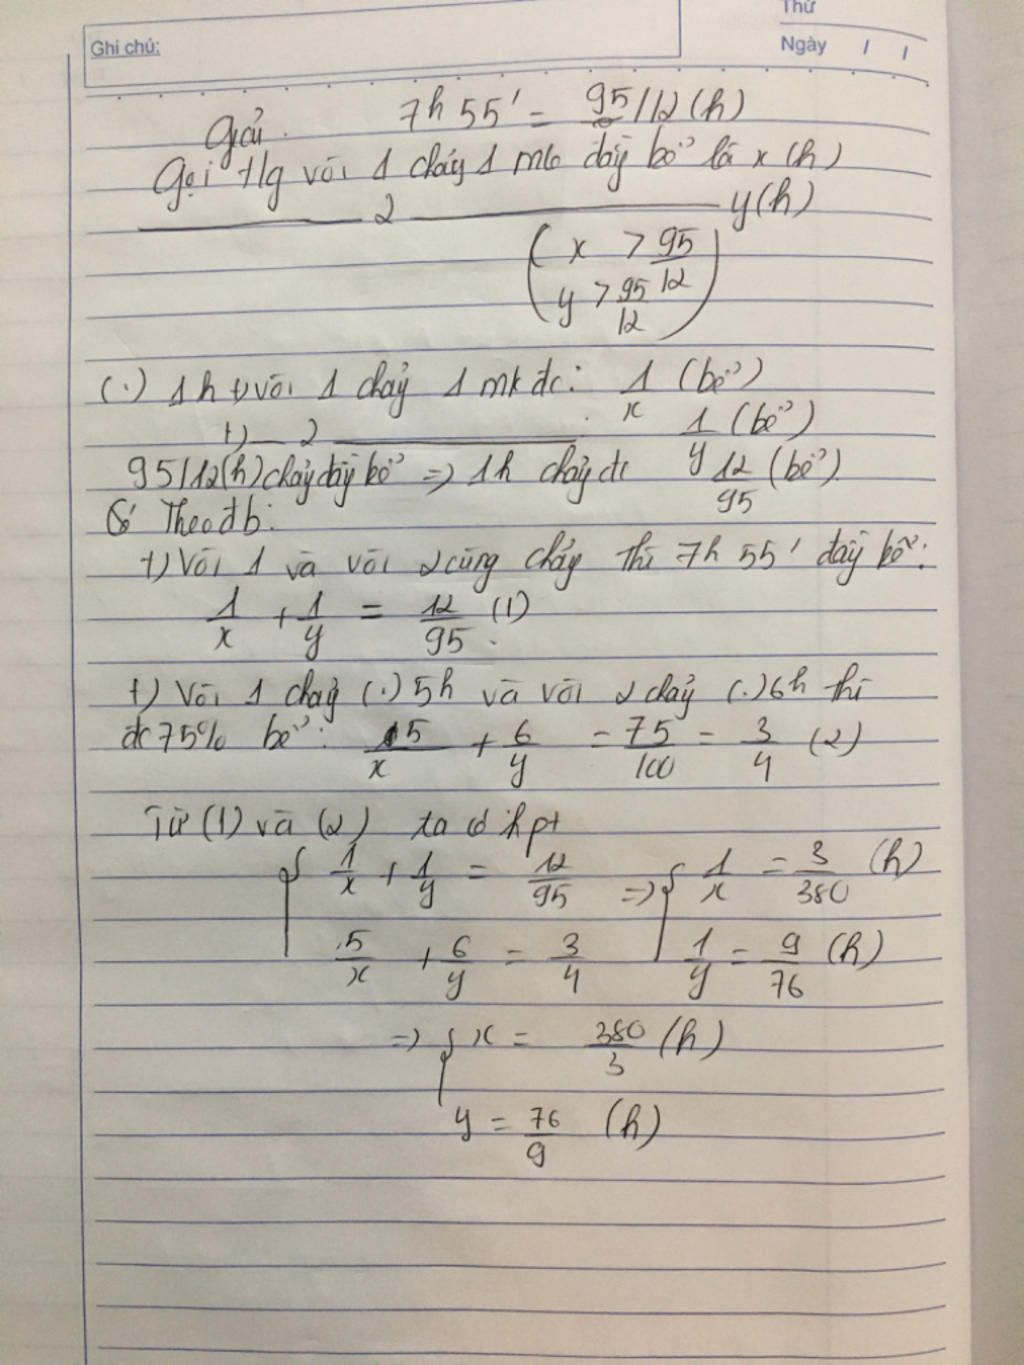 Thứ
Ghi chú:
Ngày / /
Giải. 7h 55' = 95/12 (h)
Gọi tg vòi 1 chảy 1 mk đầy bể là x (h)
2 y (h)
( x > 95/12
y > 95/12 )
(.) 1h +, vòi 1 chảy 1 mk đc: 1/x (bể)
+) 2 1/y (bể)
95/12(h) chảy đầy bể => 1h chảy đc 12/95 (bể)
Theo đb:
+) Vòi 1 và vòi 2 cùng chảy thì 7h 55' đầy bể:
1/x + 1/y = 12/95 (1)
+) Vòi 1 chảy (.) 5h và vòi 2 chảy (.) 6h thì
đc 75% bể: 5/x + 6/y = 75/100 = 3/4 (2)
Từ (1) và (2) ta có hpt
{ 1/x + 1/y = 12/95 => { 1/x = 3/380 (h)
5/x + 6/y = 3/4 1/y = 9/76 (h)
=> { x = 380/3 (h)
y = 76/9 (h)